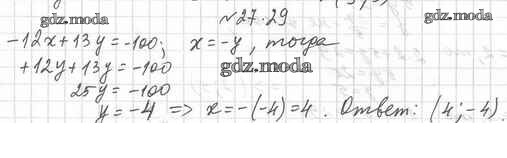 gdz.moda №27.29 gdz.moda
-12x+13y=-100; x=-y, тогда
+12y+13y=-100 gdz.moda
25y=-100
y=-4 => x=-(-4)=4. Ответ: (4;-4).